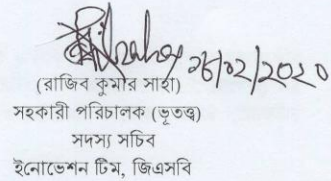 ২৬/০২/২০২০
(রাজিব কুমার সাহা)
সহকারী পরিচালক (ভূতত্ত্ব)
সদস্য সচিব
ইনোভেশন টিম, জিএসবি